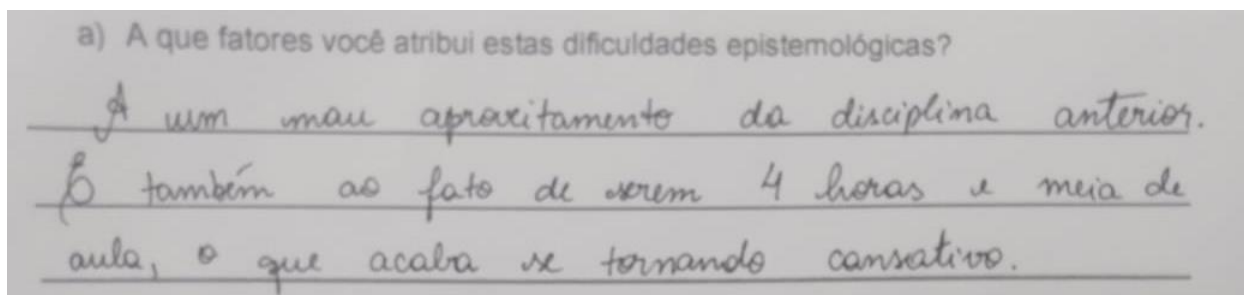 a) A que fatores você atribui estas dificuldades epistemológicas?
A um mau aproveitamento da disciplina anterior.
E também ao fato de serem 4 horas e meia de
aula, o que acaba se tornando cansativo.